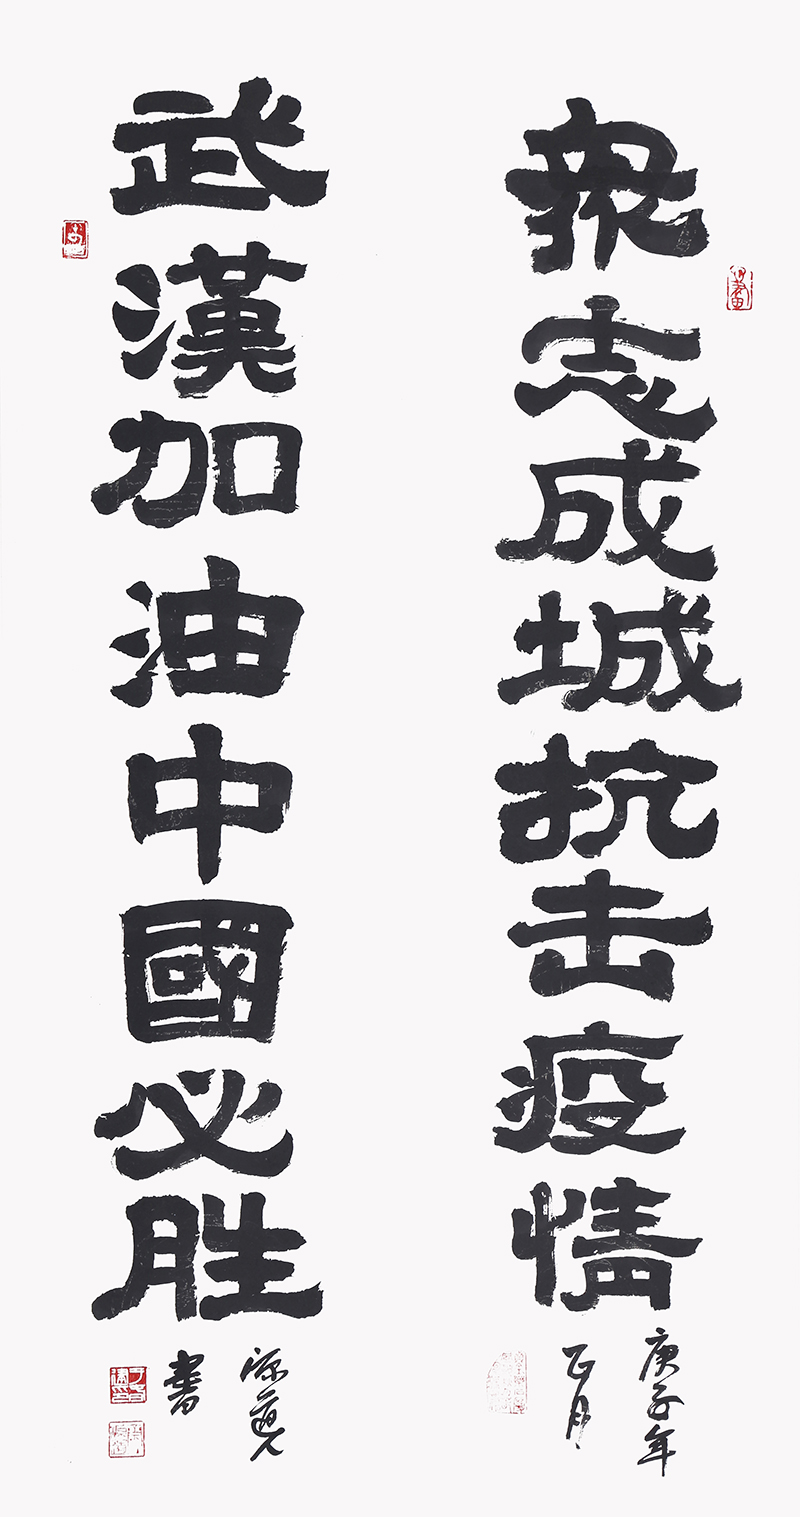 衆志成城抗击疫情
庚子年
正月
武漢加油中國必胜
書